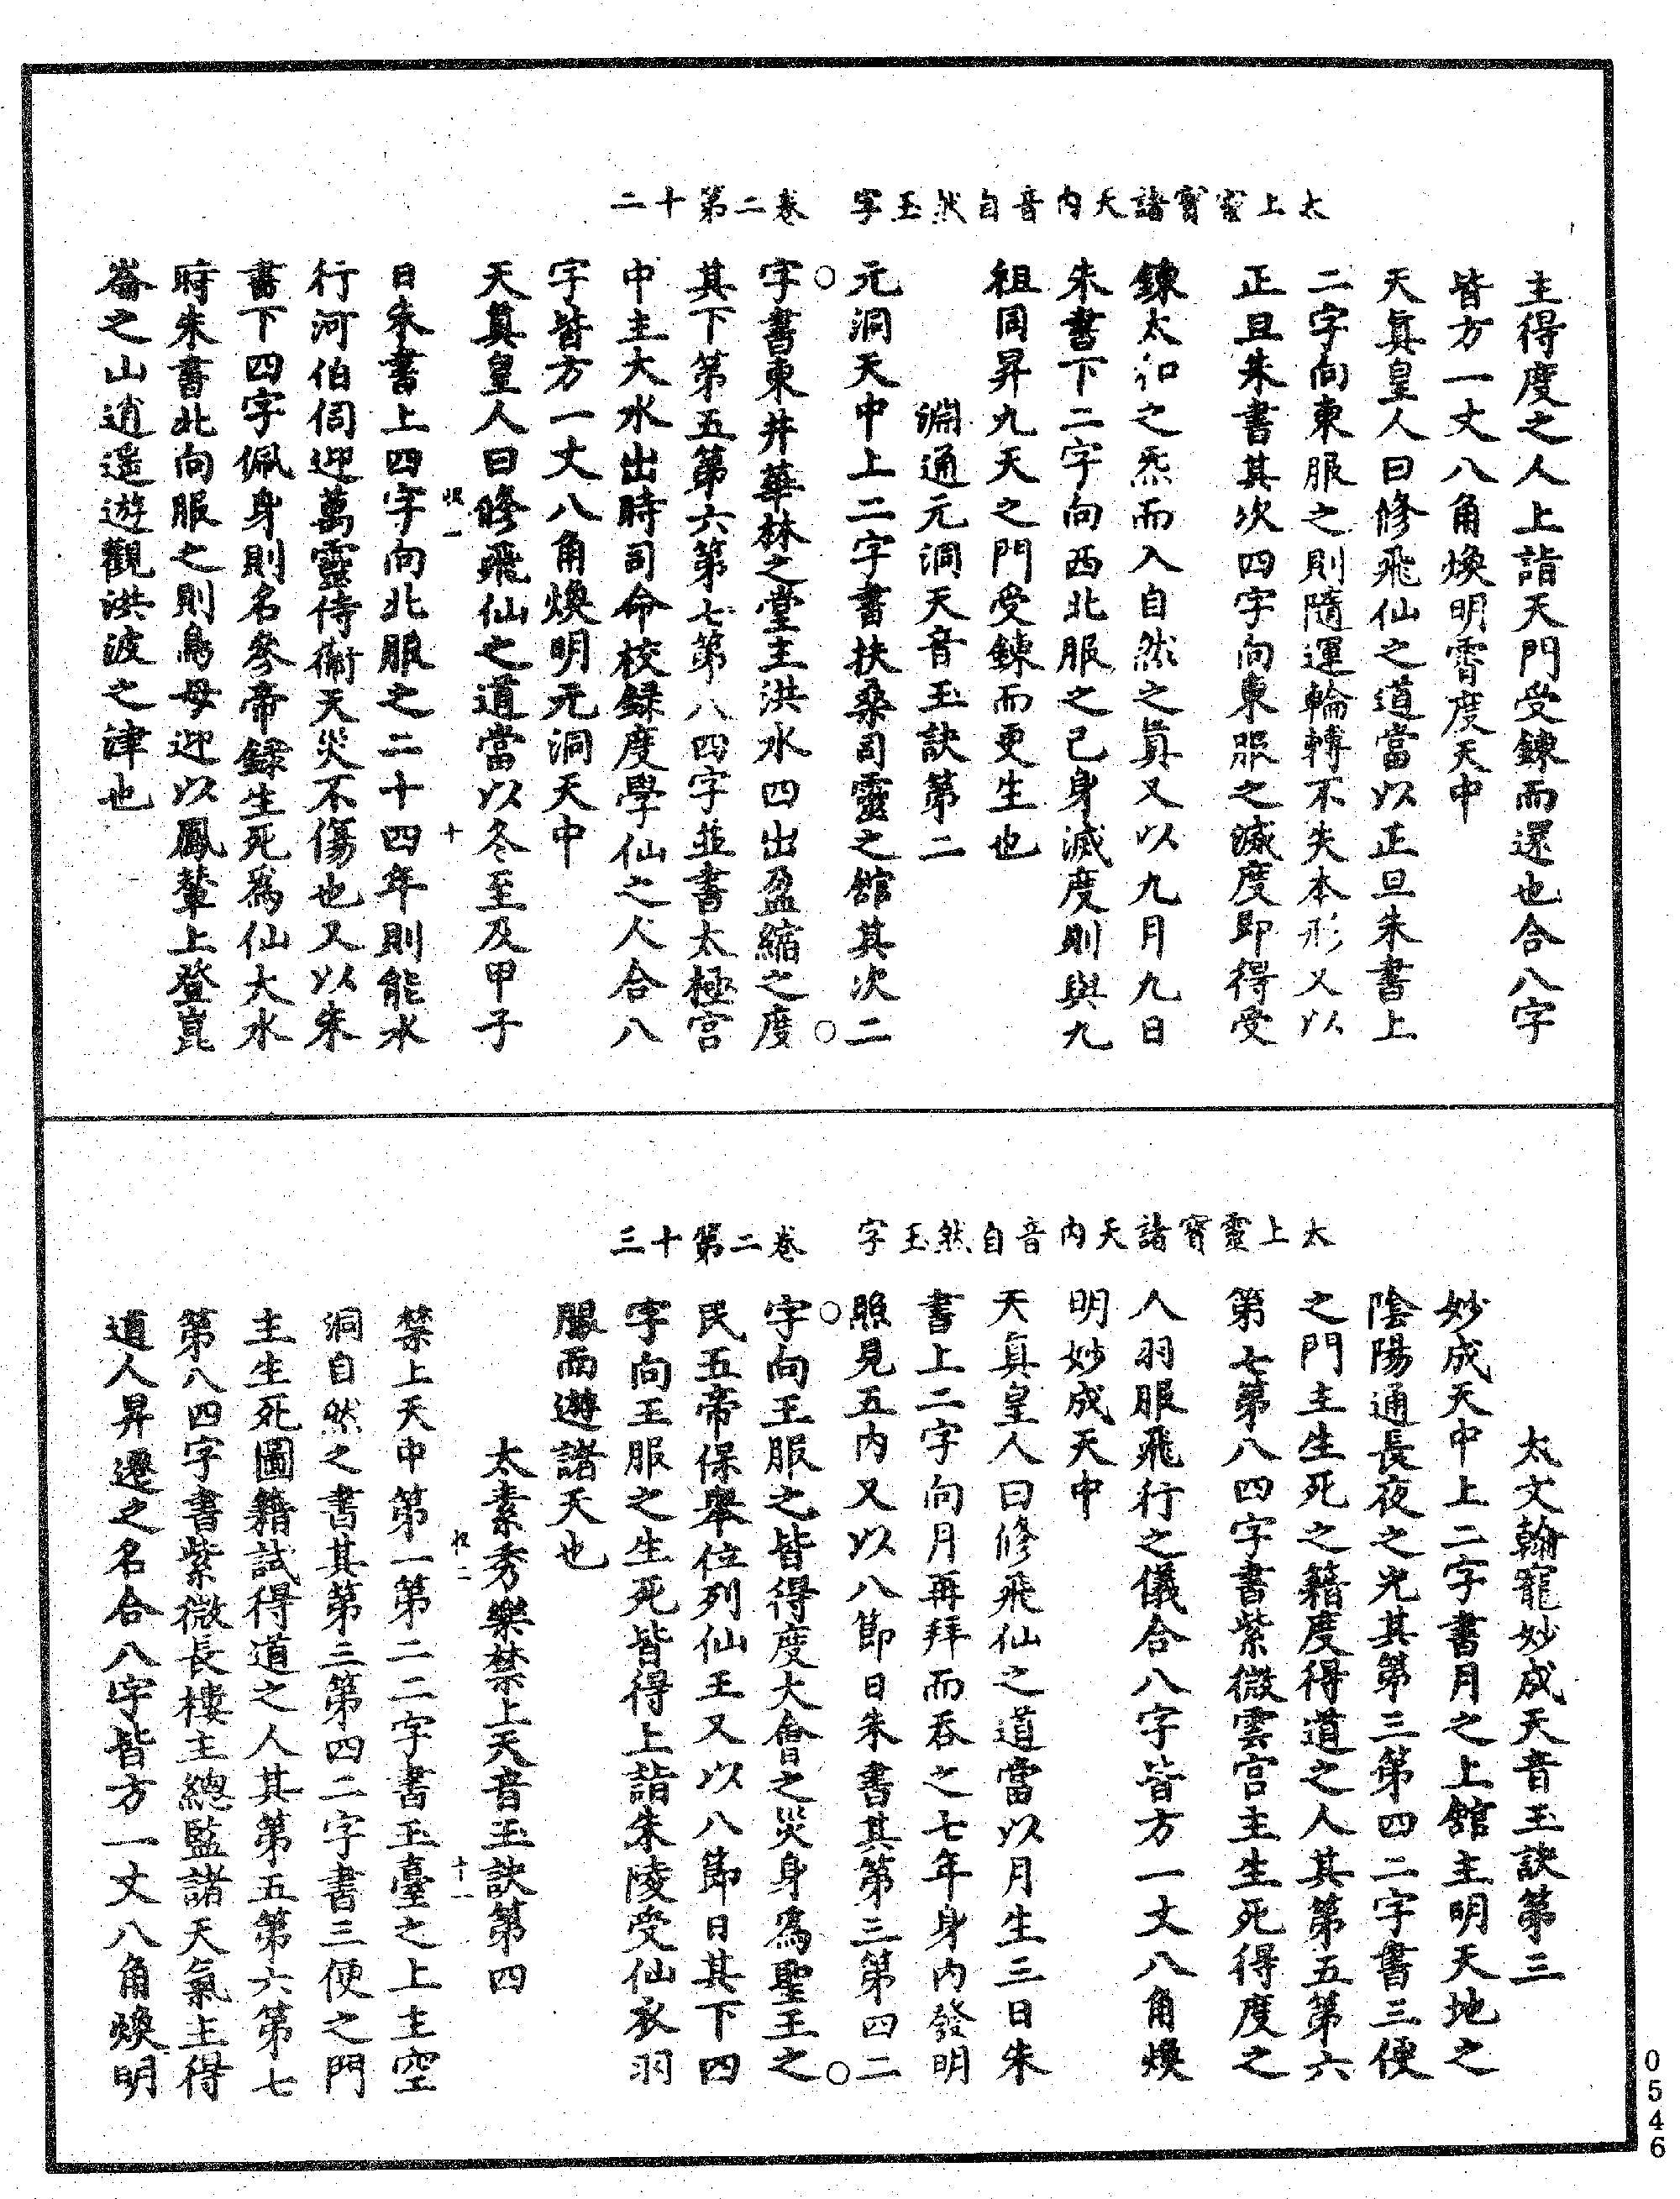 太上靈寶諸天內音自然玉字　卷二第十二
主得度之人上詣天門受鍊而還也合八字
皆方一丈八角煥明霄度天中
天眞皇人曰修飛仙之道當以正旦朱書上
二字向東服之則隨運輪轉不失本形又以
正旦朱書其次四字向東服之滅度即得受
鍊太和之炁而入自然之眞又以九月九日
朱書下二字向西北服之己身滅度則與九
祖同昇九天之門受鍊而更生也
淵通元洞天音玉訣第二
元洞天中上二字書扶桑司靈之館其次二
字書東井華林之堂主洪水四出盈縮之度
其下第五第六第七第八四字並書太極宮
中主大水出時司命校録度學仙之人合八
字皆方一丈八角煥明元洞天中
天眞皇人曰修飛仙之道當以冬至及甲子
十
日朱書上四字向北服之二十四年則能水
行河伯伺迎萬靈侍衞天災不傷也又以朱
書下四字佩身則名參帝録生死爲仙大水
時朱書北向服之則鳥母迎以鳳輦上登崑
崙之山逍遥遊觀洪波之津也
太上靈寶諸天內音自然玉字　卷二第十三
太文翰寵妙成天音玉訣第三
妙成天中上二字書月之上館主明天地之
陰陽通長夜之光其第三第四二字書三便
之門主生死之籍度得道之人其第五第六
第七第八四字書紫微雲宮主生死得度之
人羽服飛行之儀合八字皆方一丈八角煥
明妙成天中
天眞皇人曰修飛仙之道當以月生三日朱
書上二字向月再拜而吞之七年身內發明
照見五內又以八節日朱書其第三第四二
字向王服之皆得度大會之災身爲聖王之
民五帝保舉位列仙王又以八節日其下四
字向王服之生死皆得上詣朱陵受仙衣羽
服而遊諸天也
太素秀樂禁上天音玉訣第四
十一
禁上天中第一第二二字書玉臺之上主空
洞自然之書其第三第四二字書三便之門
主生死圖籍試得道之人其第五第六第七
第八四字書紫微長樓主總監諸天氣上得
道人昇遷之名合八字皆方一丈八角煥明
0546